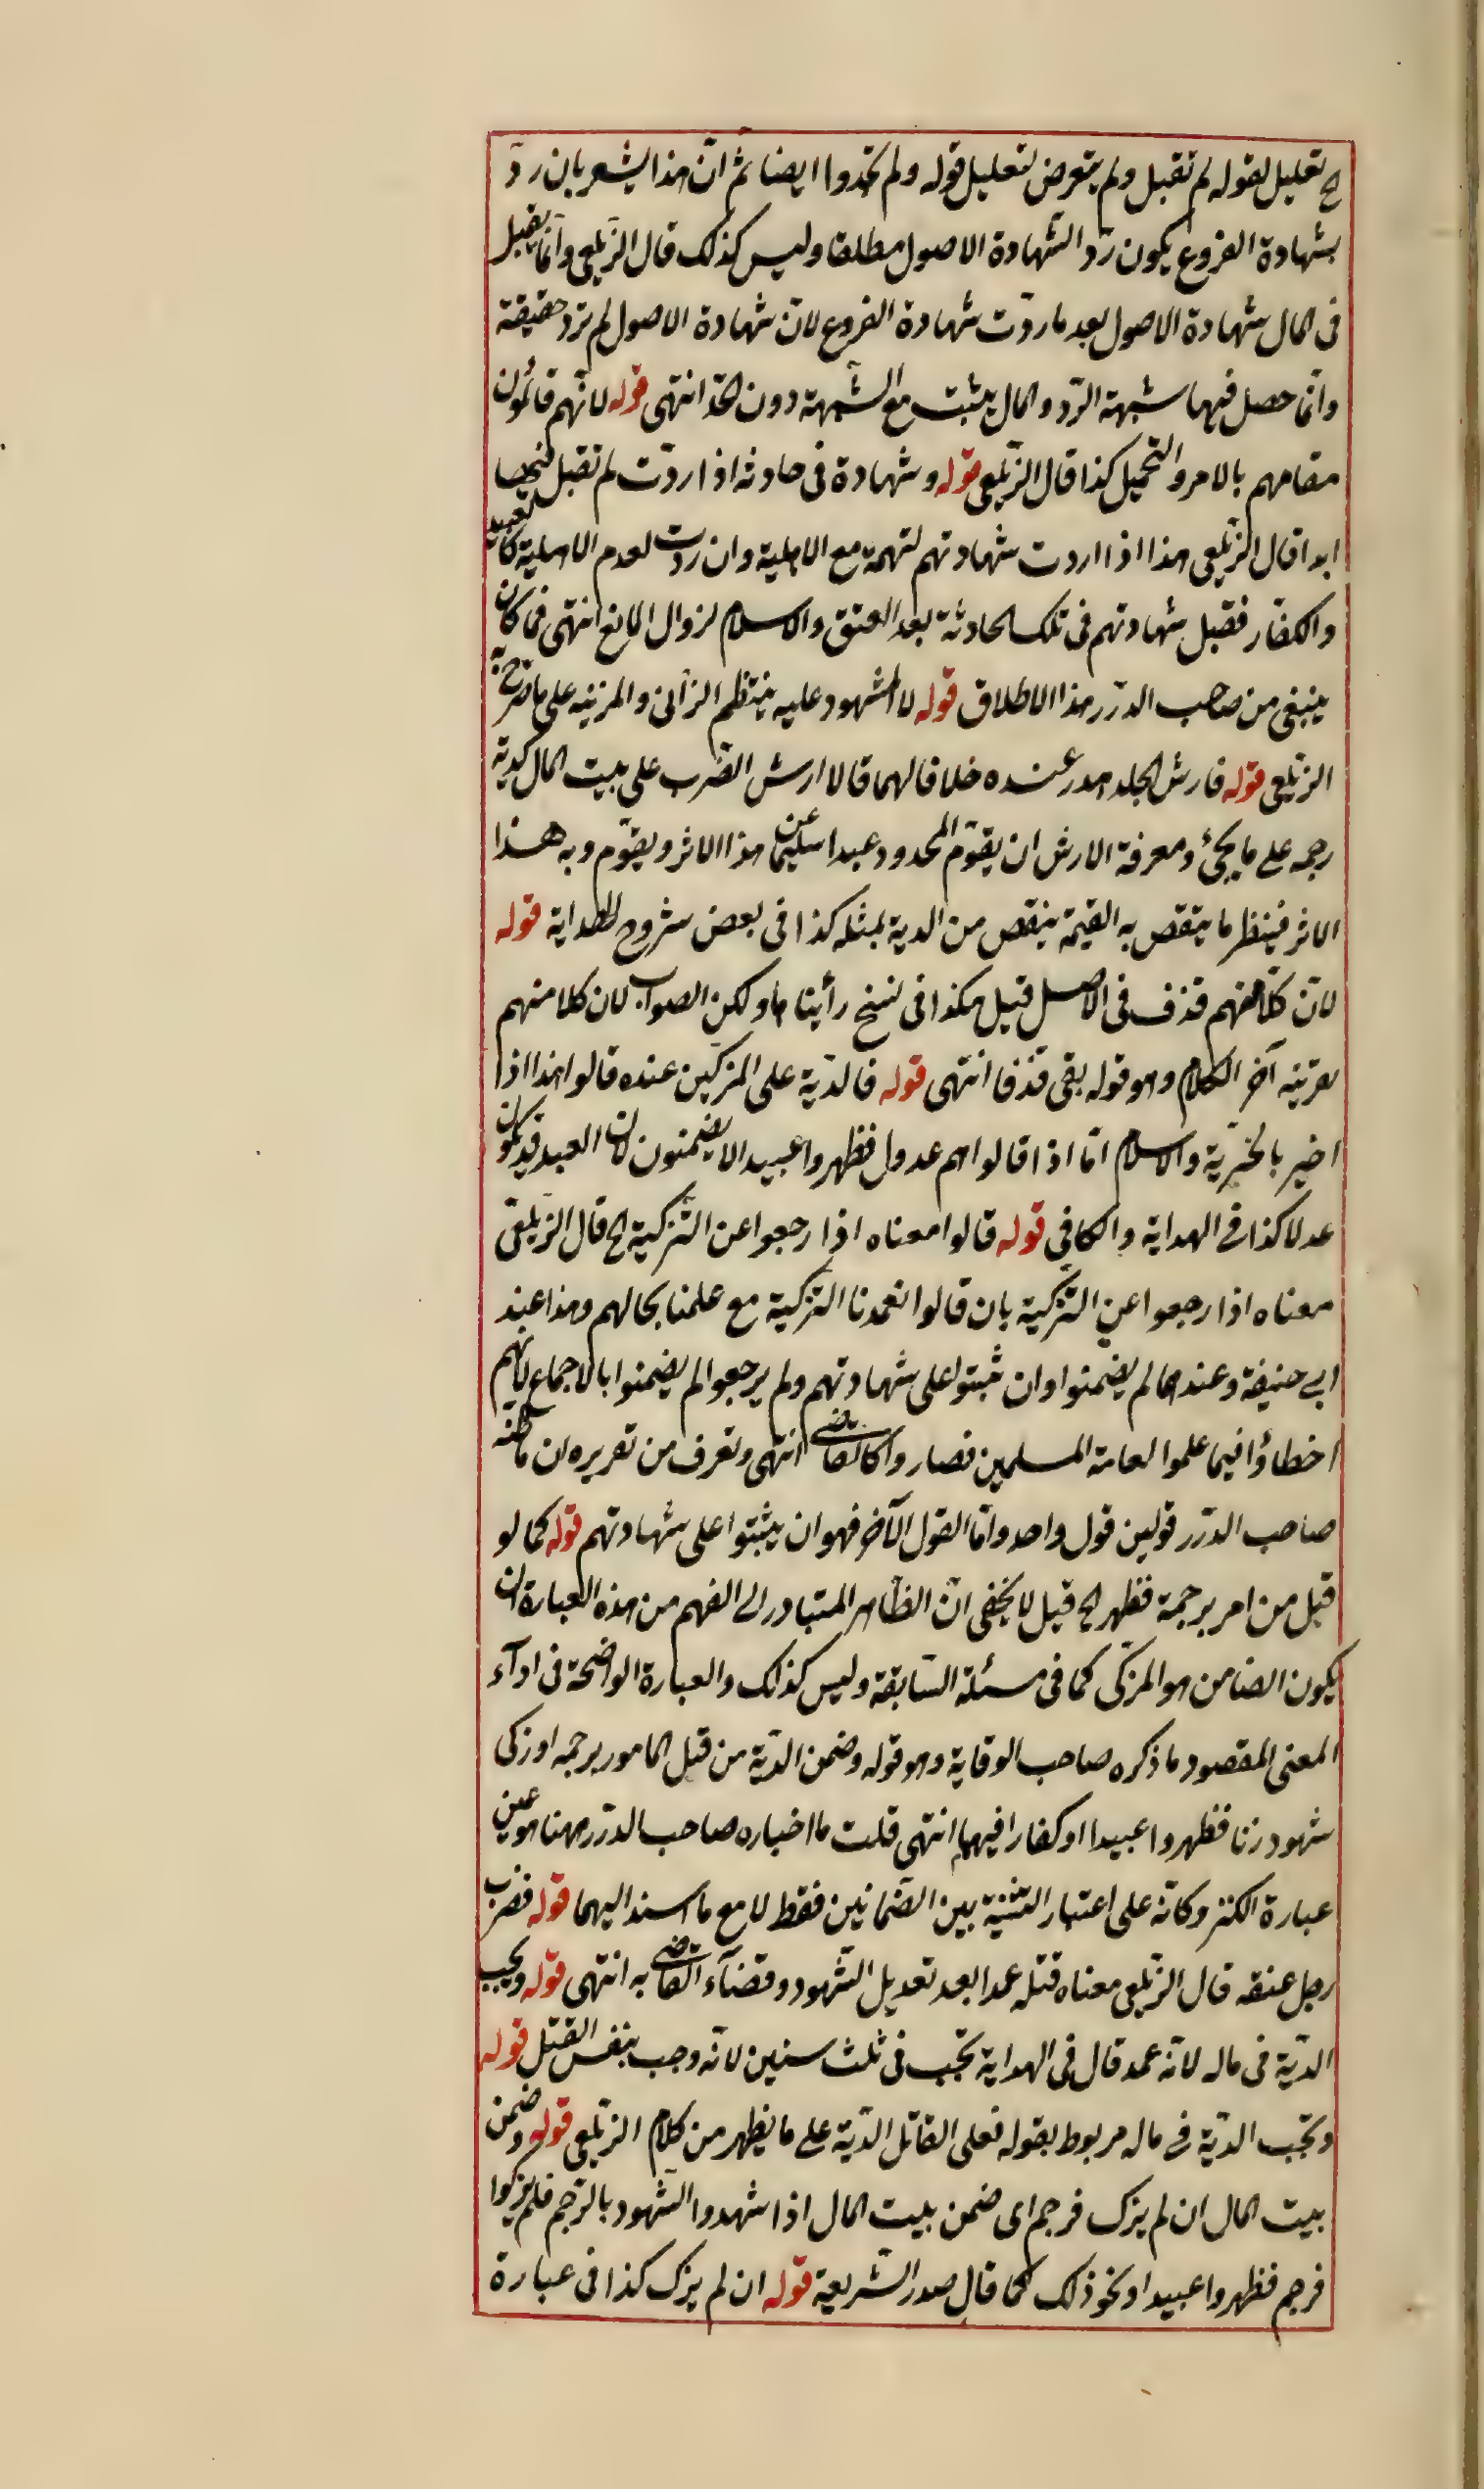 ح تعليل لقوله لم تقبل ولم يتعرض لتعليل قوله ولم تحدوا ايضا ثم انّ هذا يشعر بان ردّ
بشهادة الفروع يكون ردّ الشّهادة الاصول مطلقا وليس كذلك قال الزيلعى وانّما يقبل
فى المال شهادة الاصول بعد ما ردّت شهادة الفروع لانّ شهادة الاصول لم تردّ حقيقة
وانّما حصل فيها شبهة الردّ والمال يثبت مع الشّبهة دون الحدّ انتهى قوله لانّهم قائمون
مقامهم بالامر والتحميل كذا قال الزّيلعى قوله وشهادة فى حادثة اذا ردّت لم تقبل فيها
ابدا قال الزّيلعى هذا اذا اردت شهادتهم لتهمة مع الاهلية وان ردّت لعدم الاهلية كالعبيد
والكفّار فقبل شهادتهم فى تلك الحادثة بعد العتق والاسلام لزوال المانع انتهى فما كان
ينبغى من صاحب الدّرر هذا الاطلاق قوله لا المشهود عليه ينتظم الزّانى والمزنيه على ما صرّح به
الزيلعى قوله فارش الجلد هدر عنده خلافا لهما قالا ارش الضّرب على بيت المال كدية
رجمه على ما يجئ ومعرفة الارش ان يقوّم المحدود عبدا سليما عن هذا الاثر ويقوّم وبه هذا
الاثر فينظر ما ينقص به القيمة ينقص من الدية بمثله كذا فى بعض شروح الهداية قوله
لانّ كلّا منهم قذف فى الاصل قيل هكذا فى نسخ رأيناها ولكن الصواب لان كلا منهم
بقرينه آخر الكلام وهو قوله بقى قذفا انتهى قوله فالدّية على المزكين عنده قالوا هذا اذا
اخبر بالحرّية والاسلام امّا اذا قالوا هم عدول فظهروا عبيدا لا يضمنون لان العبد قد يكون
عدلا كذا فى الهداية والكافى قوله قالوا معناه اذا رجعوا عن التّزكية الخ قال الزيلعى
معناه اذا رجعوا عن التّزكية بان قالوا تعمدنا التزكية مع علمنا بحالهم وهذا عند
ابى حنيفة وعندهما لم يضمنوا وان ثبتوا على شهادتهم ولم يرجعوا لم يضمنوا بالاجماع لانهم
اخطاؤا فيما علموا لعامة المسلمين فصاروا كالقاضى انتهى وتعرف من تقريره ان ما ظنه
صاحب الدّرر قولين قول واحد وامّا القول الآخر فهو ان يثبتوا على شهادتهم قوله كما لو
قبل من امر برجمة فظهر الخ قيل لا يخفى انّ الظاهر المتبادر الى الفهم من هذه العبارة ان
يكون الضامن هو المزكّى كما فى مسئلة السّابقة وليس كذلك والعبارة الواضحة فى ادآء
المعنى المقصود ما ذكره صاحب الوقاية وهو قوله وضمن الدّية من قتل المامور برجمه او زكى
شهود زنا فظهروا عبيدا او كفارا فيهما انتهى قلت ما اختاره صاحب الدّرر ههنا هو عين
عبارة الكنز وكانّه على اعتبار التثنية بين الضّمانين فقط لا مع ما اسند اليهما قوله فضرب
رجل عنقه قال الزّيلعى معناه قتله عمدا بعد تعديل الشّهود وقضآء القاضى به انتهى قوله ويجب
الدّية فى ماله لانّه عمد قال فى الهداية تجب فى ثلث سنين لانّه وجب بنفس القتل قوله
وتجب الدّية فى ماله مربوط بقوله فعلى القاتل الدّية على ما يظهر من كلام الزّيلعى قوله وضمن
بيت المال ان لم يزك فرجم اى ضمن بيت المال اذا شهدوا الشّهود بالرّجم فلم يزكوا
فرجم فظهروا عبيدا او نحو ذلك كما قال صدر الشّريعة قوله ان لم يزك كذا فى عبارة